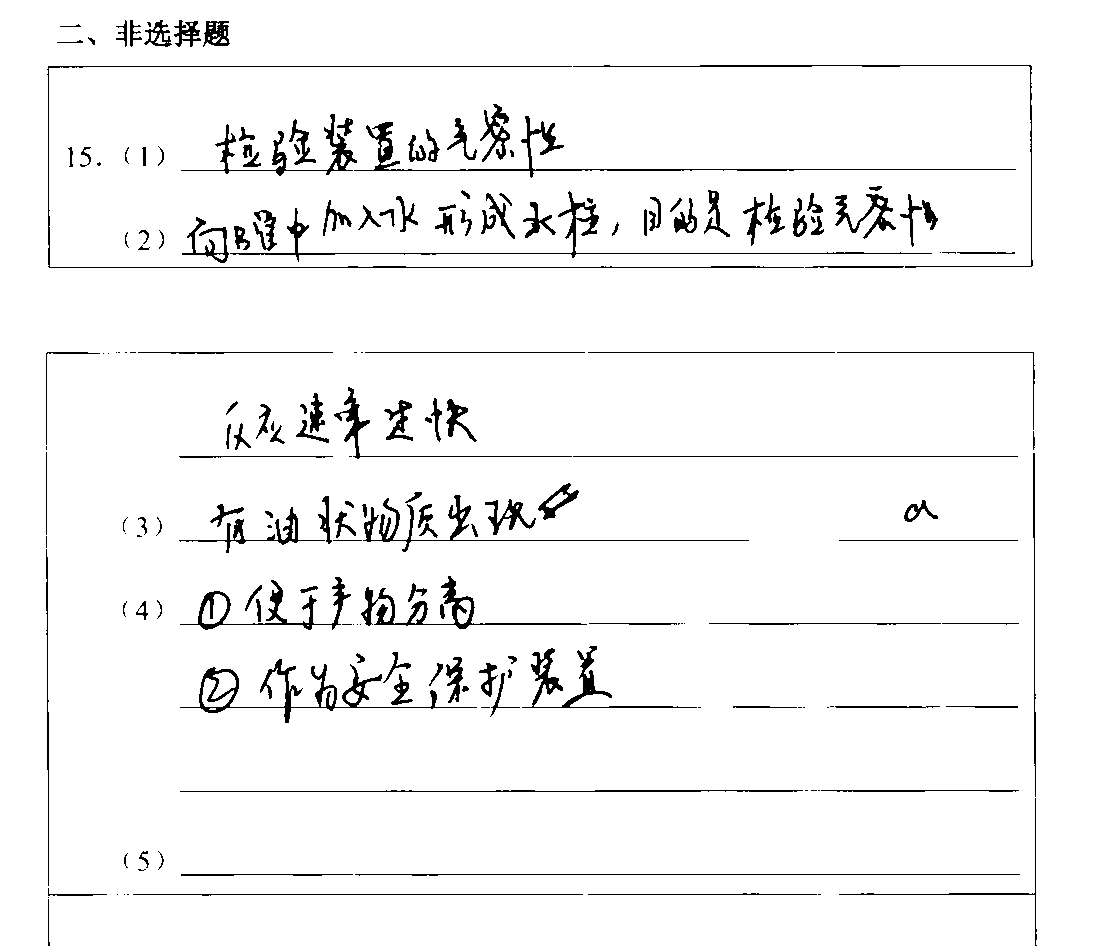 二、非选择题
15.（1） 检验装置的气密性
（2） 向B管中加入水形成水柱，目的是检验气密性
反应速率过快
（3） 有油状物质出现 a
（4） ①便于产物分离
②作为安全保护装置
（5）